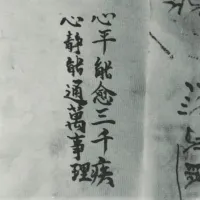 心平能愈三千疾
心静能通萬事理